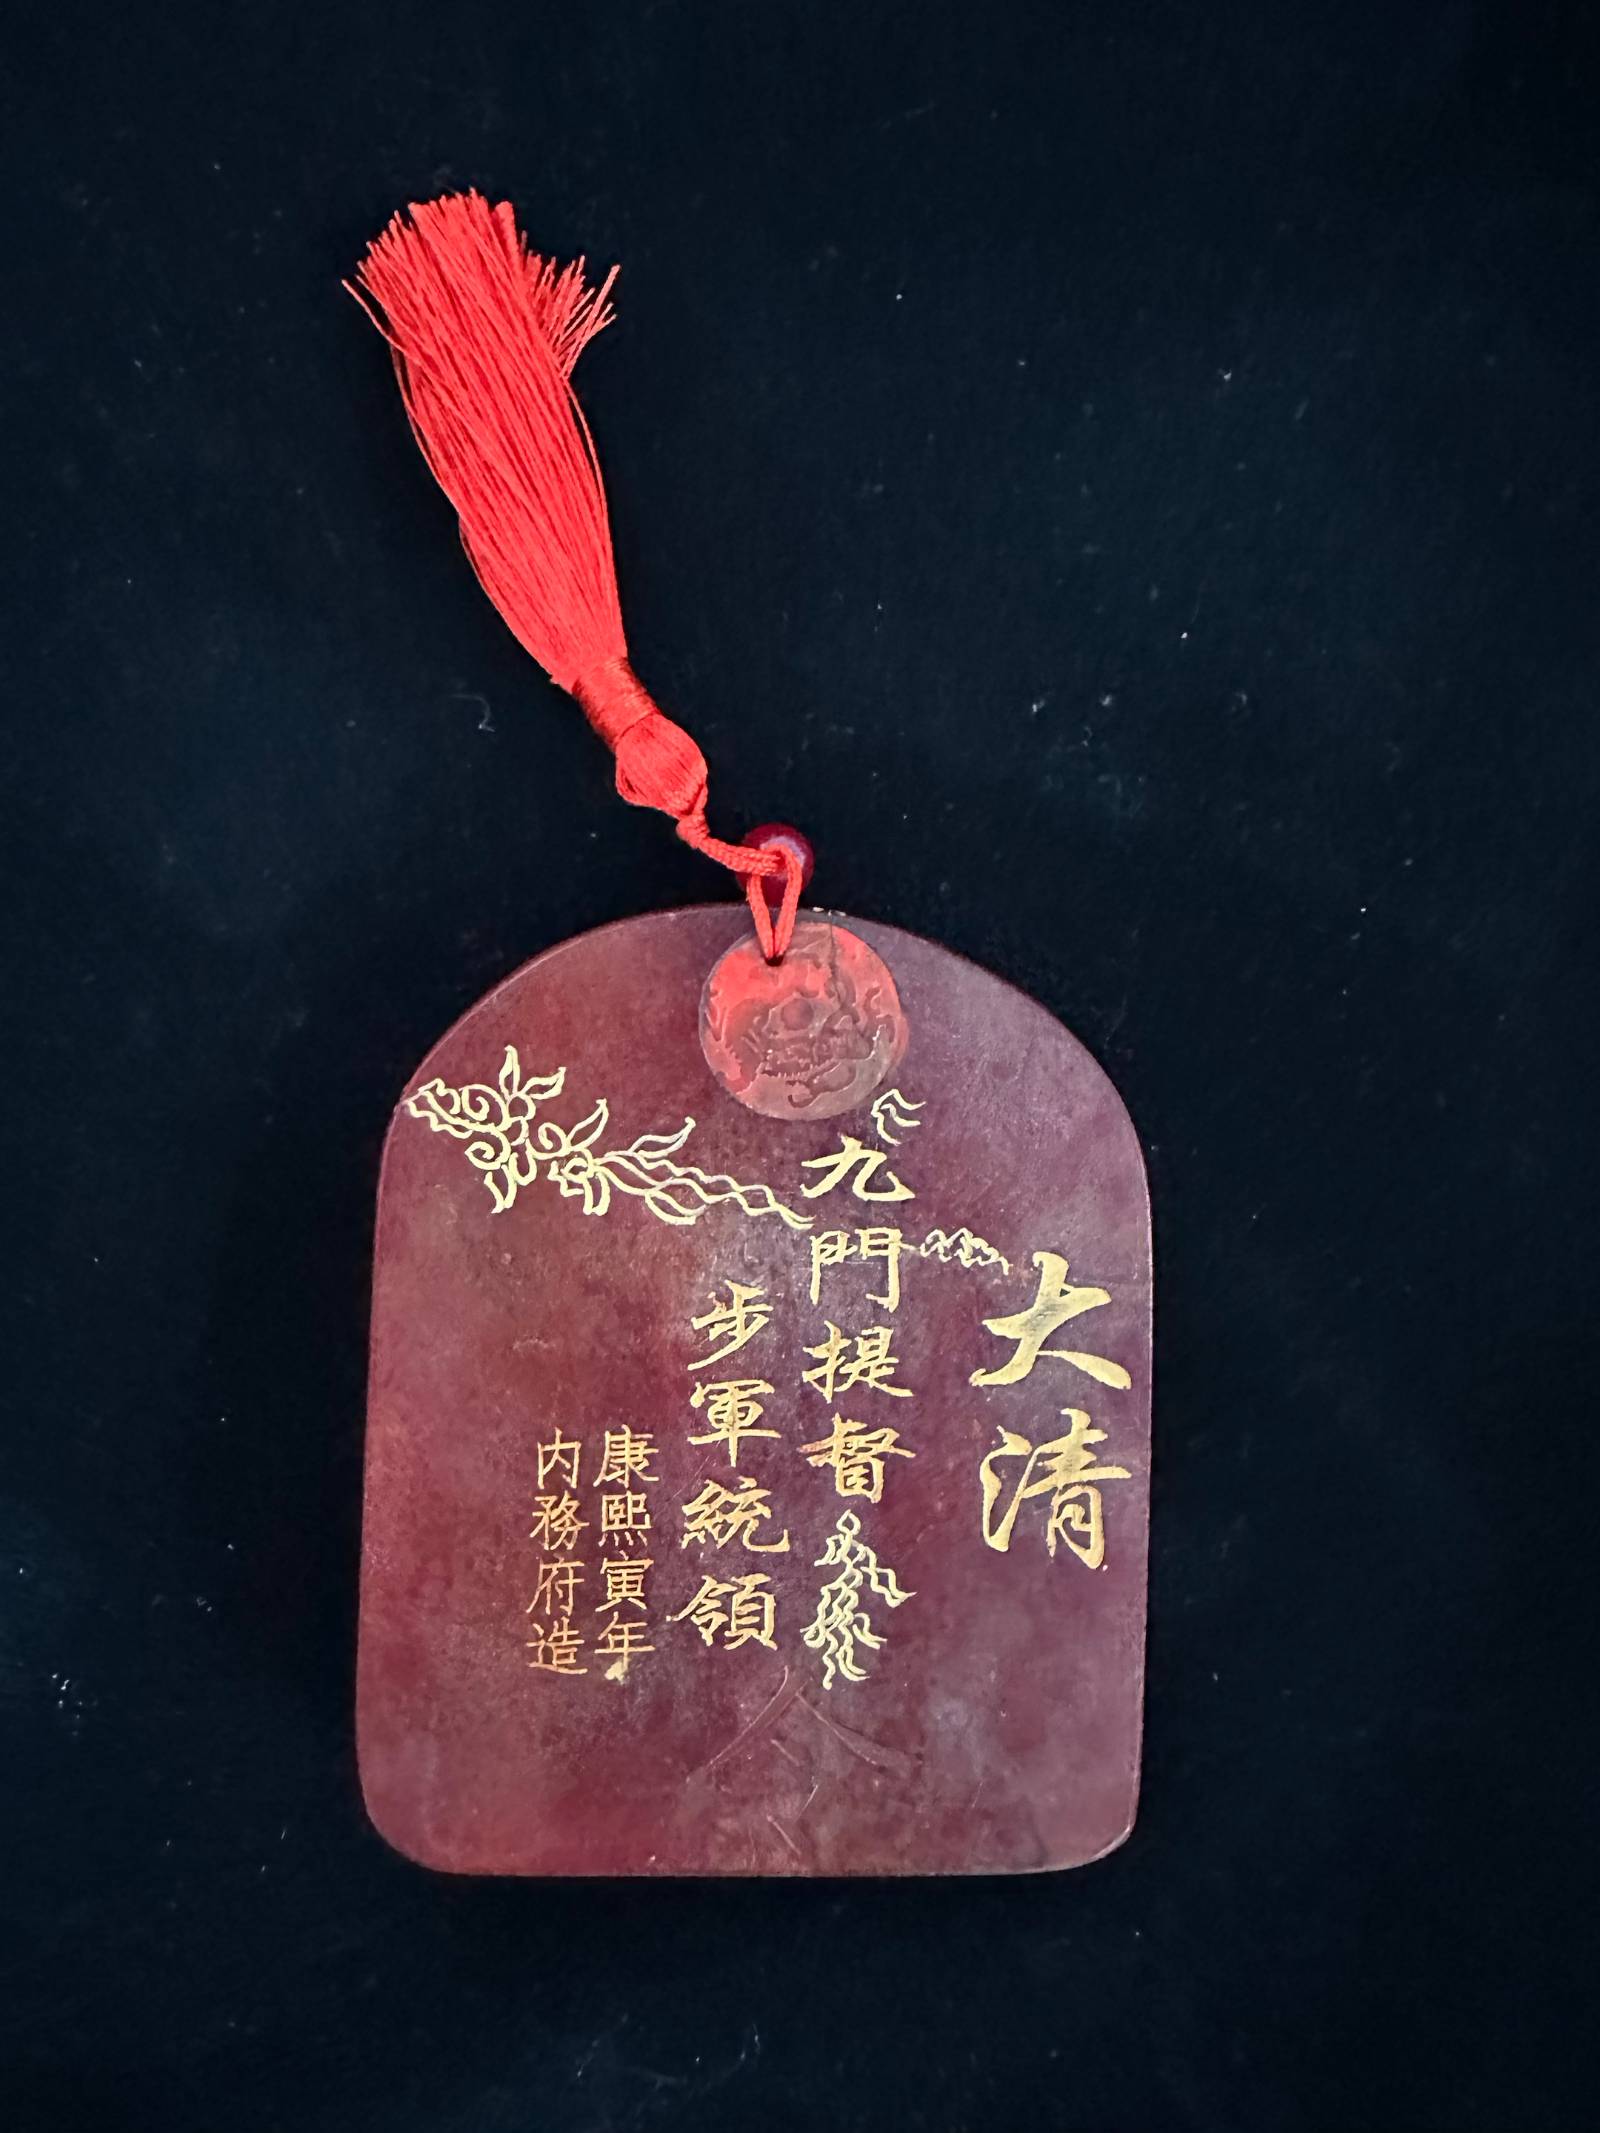 大清
九門提督
步軍統領
康熙寅年
内務府造